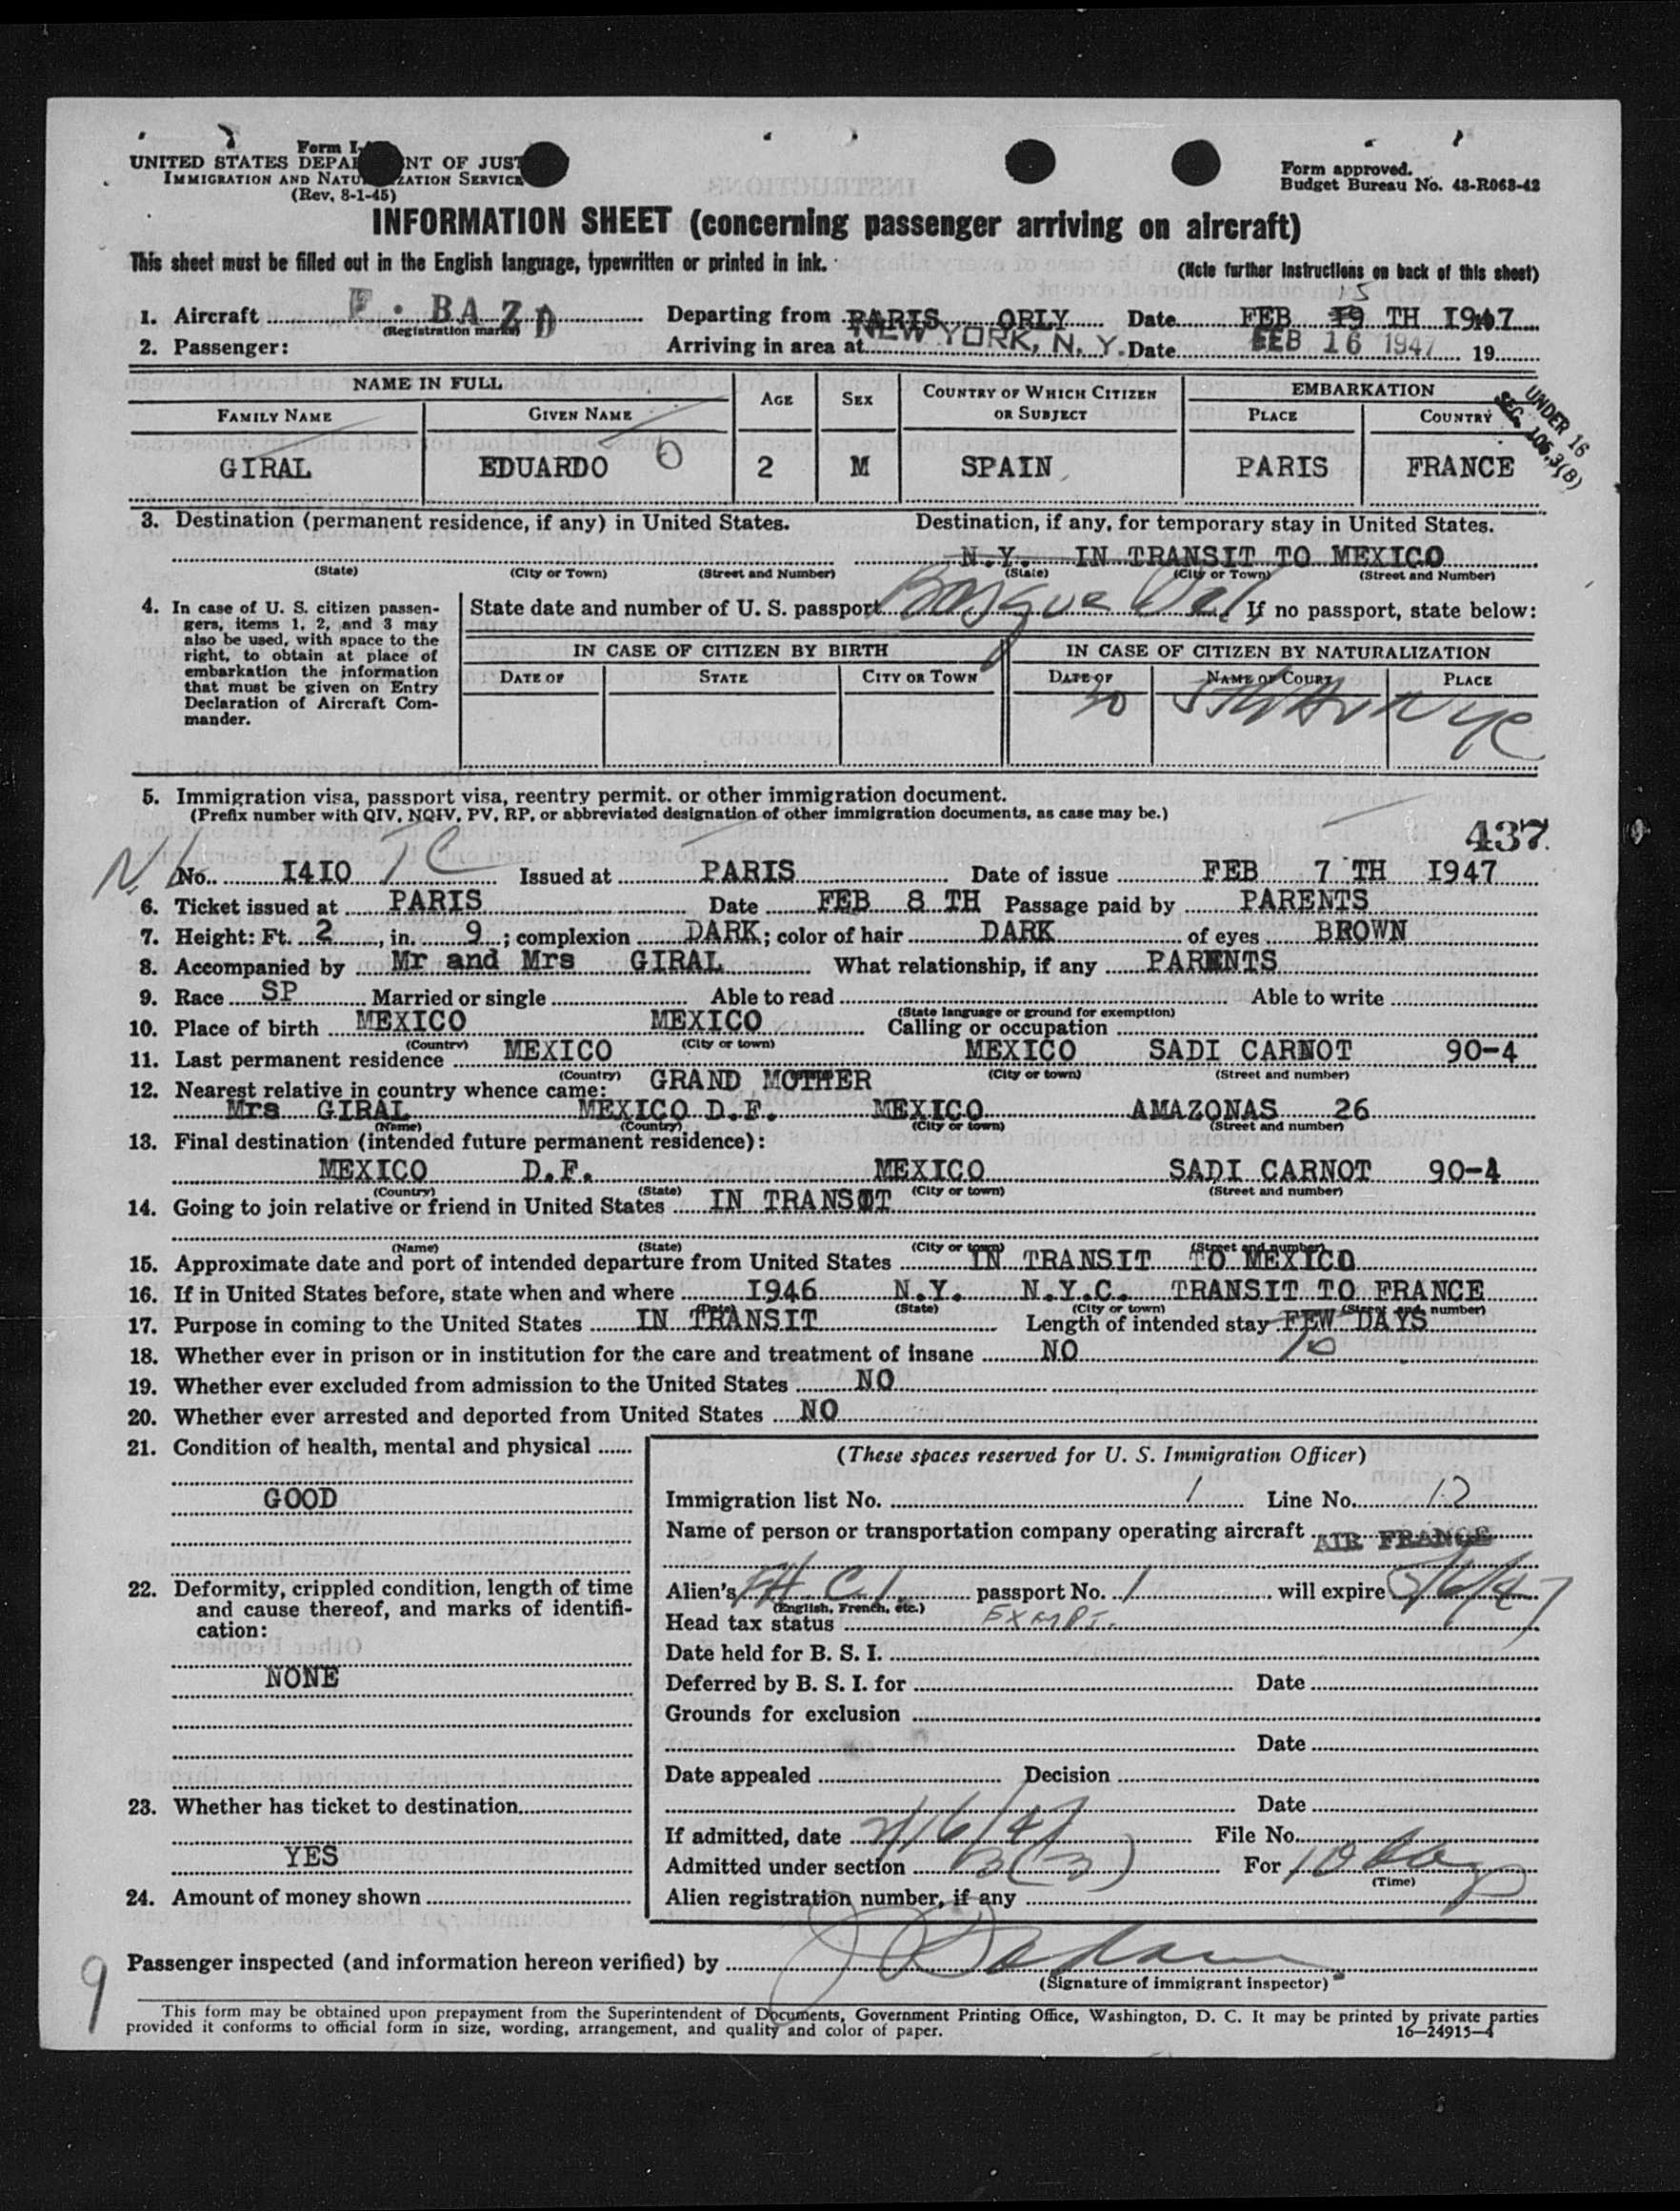 Form I-
UNITED STATES DEPA NT OF JUST
IMMIGRATION AND NATU ZATION SERVICE
(Rev. 8-1-45)
Form approved.
Budget Bureau No. 43-R063-42
INFORMATION SHEET (concerning passenger arriving on aircraft)
This sheet must be filled out in the English language, typewritten or printed in ink.
(Note further instructions on back of this sheet)
1. Aircraft F. BAZD Departing from PARIS ORLY Date FEB 19 15 TH 1947
(Registration marks)
2. Passenger: Arriving in area at NEW YORK, N. Y. Date FEB 16 1947 19
NAME IN FULL AGE SEX COUNTRY OF WHICH CITIZEN OR SUBJECT EMBARKATION
FAMILY NAME GIVEN NAME PLACE COUNTRY
UNDER 16
SEC. 105.3(B)
GIRAL EDUARDO 2 M SPAIN PARIS FRANCE
3. Destination (permanent residence, if any) in United States. Destination, if any, for temporary stay in United States.
N.Y. IN TRANSIT TO MEXICO
(State) (City or Town) (Street and Number) (State) (City or Town) (Street and Number)
4. In case of U. S. citizen passengers, items 1, 2, and 3 may also be used, with space to the right, to obtain at place of embarkation the information that must be given on Entry Declaration of Aircraft Commander.
State date and number of U. S. passport If no passport, state below:
IN CASE OF CITIZEN BY BIRTH IN CASE OF CITIZEN BY NATURALIZATION
DATE OF STATE CITY OR TOWN DATE OF NAME OF COURT PLACE
30 NYC
5. Immigration visa, passport visa, reentry permit. or other immigration document.
(Prefix number with QIV, NQIV, PV, RP, or abbreviated designation of other immigration documents, as case may be.)
437
No. I4I0 TC Issued at PARIS Date of issue FEB 7 TH I947
6. Ticket issued at PARIS Date FEB 8 TH Passage paid by PARENTS
7. Height: Ft. 2, in. 9; complexion DARK; color of hair DARK of eyes BROWN
8. Accompanied by Mr and Mrs GIRAL What relationship, if any PARENTS
9. Race SP Married or single Able to read Able to write
(State language or ground for exemption)
10. Place of birth MEXICO MEXICO Calling or occupation
(Country) (City or town)
11. Last permanent residence MEXICO MEXICO SADI CARNOT 90-4
(Country) (City or town) (Street and number)
12. Nearest relative in country whence came: GRAND MOTHER
Mrs GIRAL MEXICO D.F. MEXICO AMAZONAS 26
(Name) (Country) (City or town) (Street and number)
13. Final destination (intended future permanent residence):
MEXICO D.F. MEXICO SADI CARNOT 90-4
(Country) (State) (City or town) (Street and number)
14. Going to join relative or friend in United States IN TRANSIT
(Name) (State) (City or town) (Street and number)
15. Approximate date and port of intended departure from United States IN TRANSIT TO MEXICO
16. If in United States before, state when and where I946 N.Y. N.Y.C. TRANSIT TO FRANCE
(Date) (State) (City or town) (Street and number)
17. Purpose in coming to the United States IN TRANSIT Length of intended stay FEW DAYS
10
18. Whether ever in prison or in institution for the care and treatment of insane NO
19. Whether ever excluded from admission to the United States NO
20. Whether ever arrested and deported from United States NO
21. Condition of health, mental and physical
GOOD
22. Deformity, crippled condition, length of time and cause thereof, and marks of identification:
NONE
23. Whether has ticket to destination
YES
24. Amount of money shown
(These spaces reserved for U. S. Immigration Officer)
Immigration list No. 1 Line No. 12
Name of person or transportation company operating aircraft AIR FRANCE
Alien's passport No. will expire
(English, French, etc.)
Head tax status EXEMPT.
Date held for B. S. I.
Deferred by B. S. I. for Date
Grounds for exclusion
Date
Date appealed Decision
Date
If admitted, date 2/16/47 File No.
Admitted under section 3(3) For 10 days
(Time)
Alien registration number, if any
Passenger inspected (and information hereon verified) by
(Signature of immigrant inspector)
9
This form may be obtained upon prepayment from the Superintendent of Documents, Government Printing Office, Washington, D. C. It may be printed by private parties
provided it conforms to official form in size, wording, arrangement, and quality and color of paper.
16—24915-4